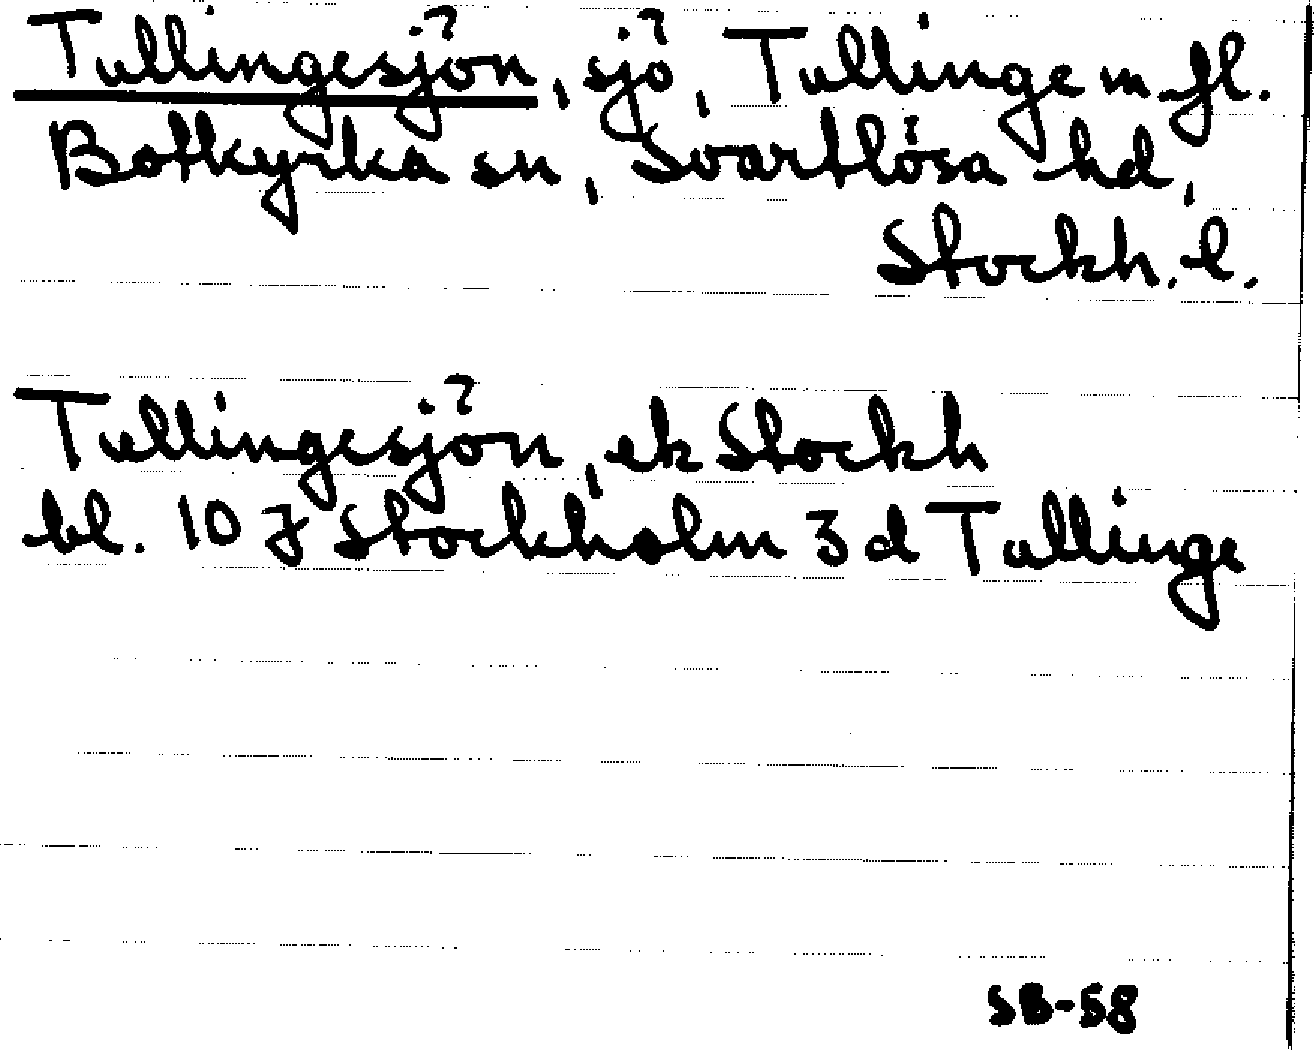 Tullingesjön, sjö, Tullinge m fl.
Botkyrka sn, Svartlösa hd,
Stockh. l.
Tullingesjön, ek Stockh
bl. 10 J Stockholm 3 d Tullinge
SB-58